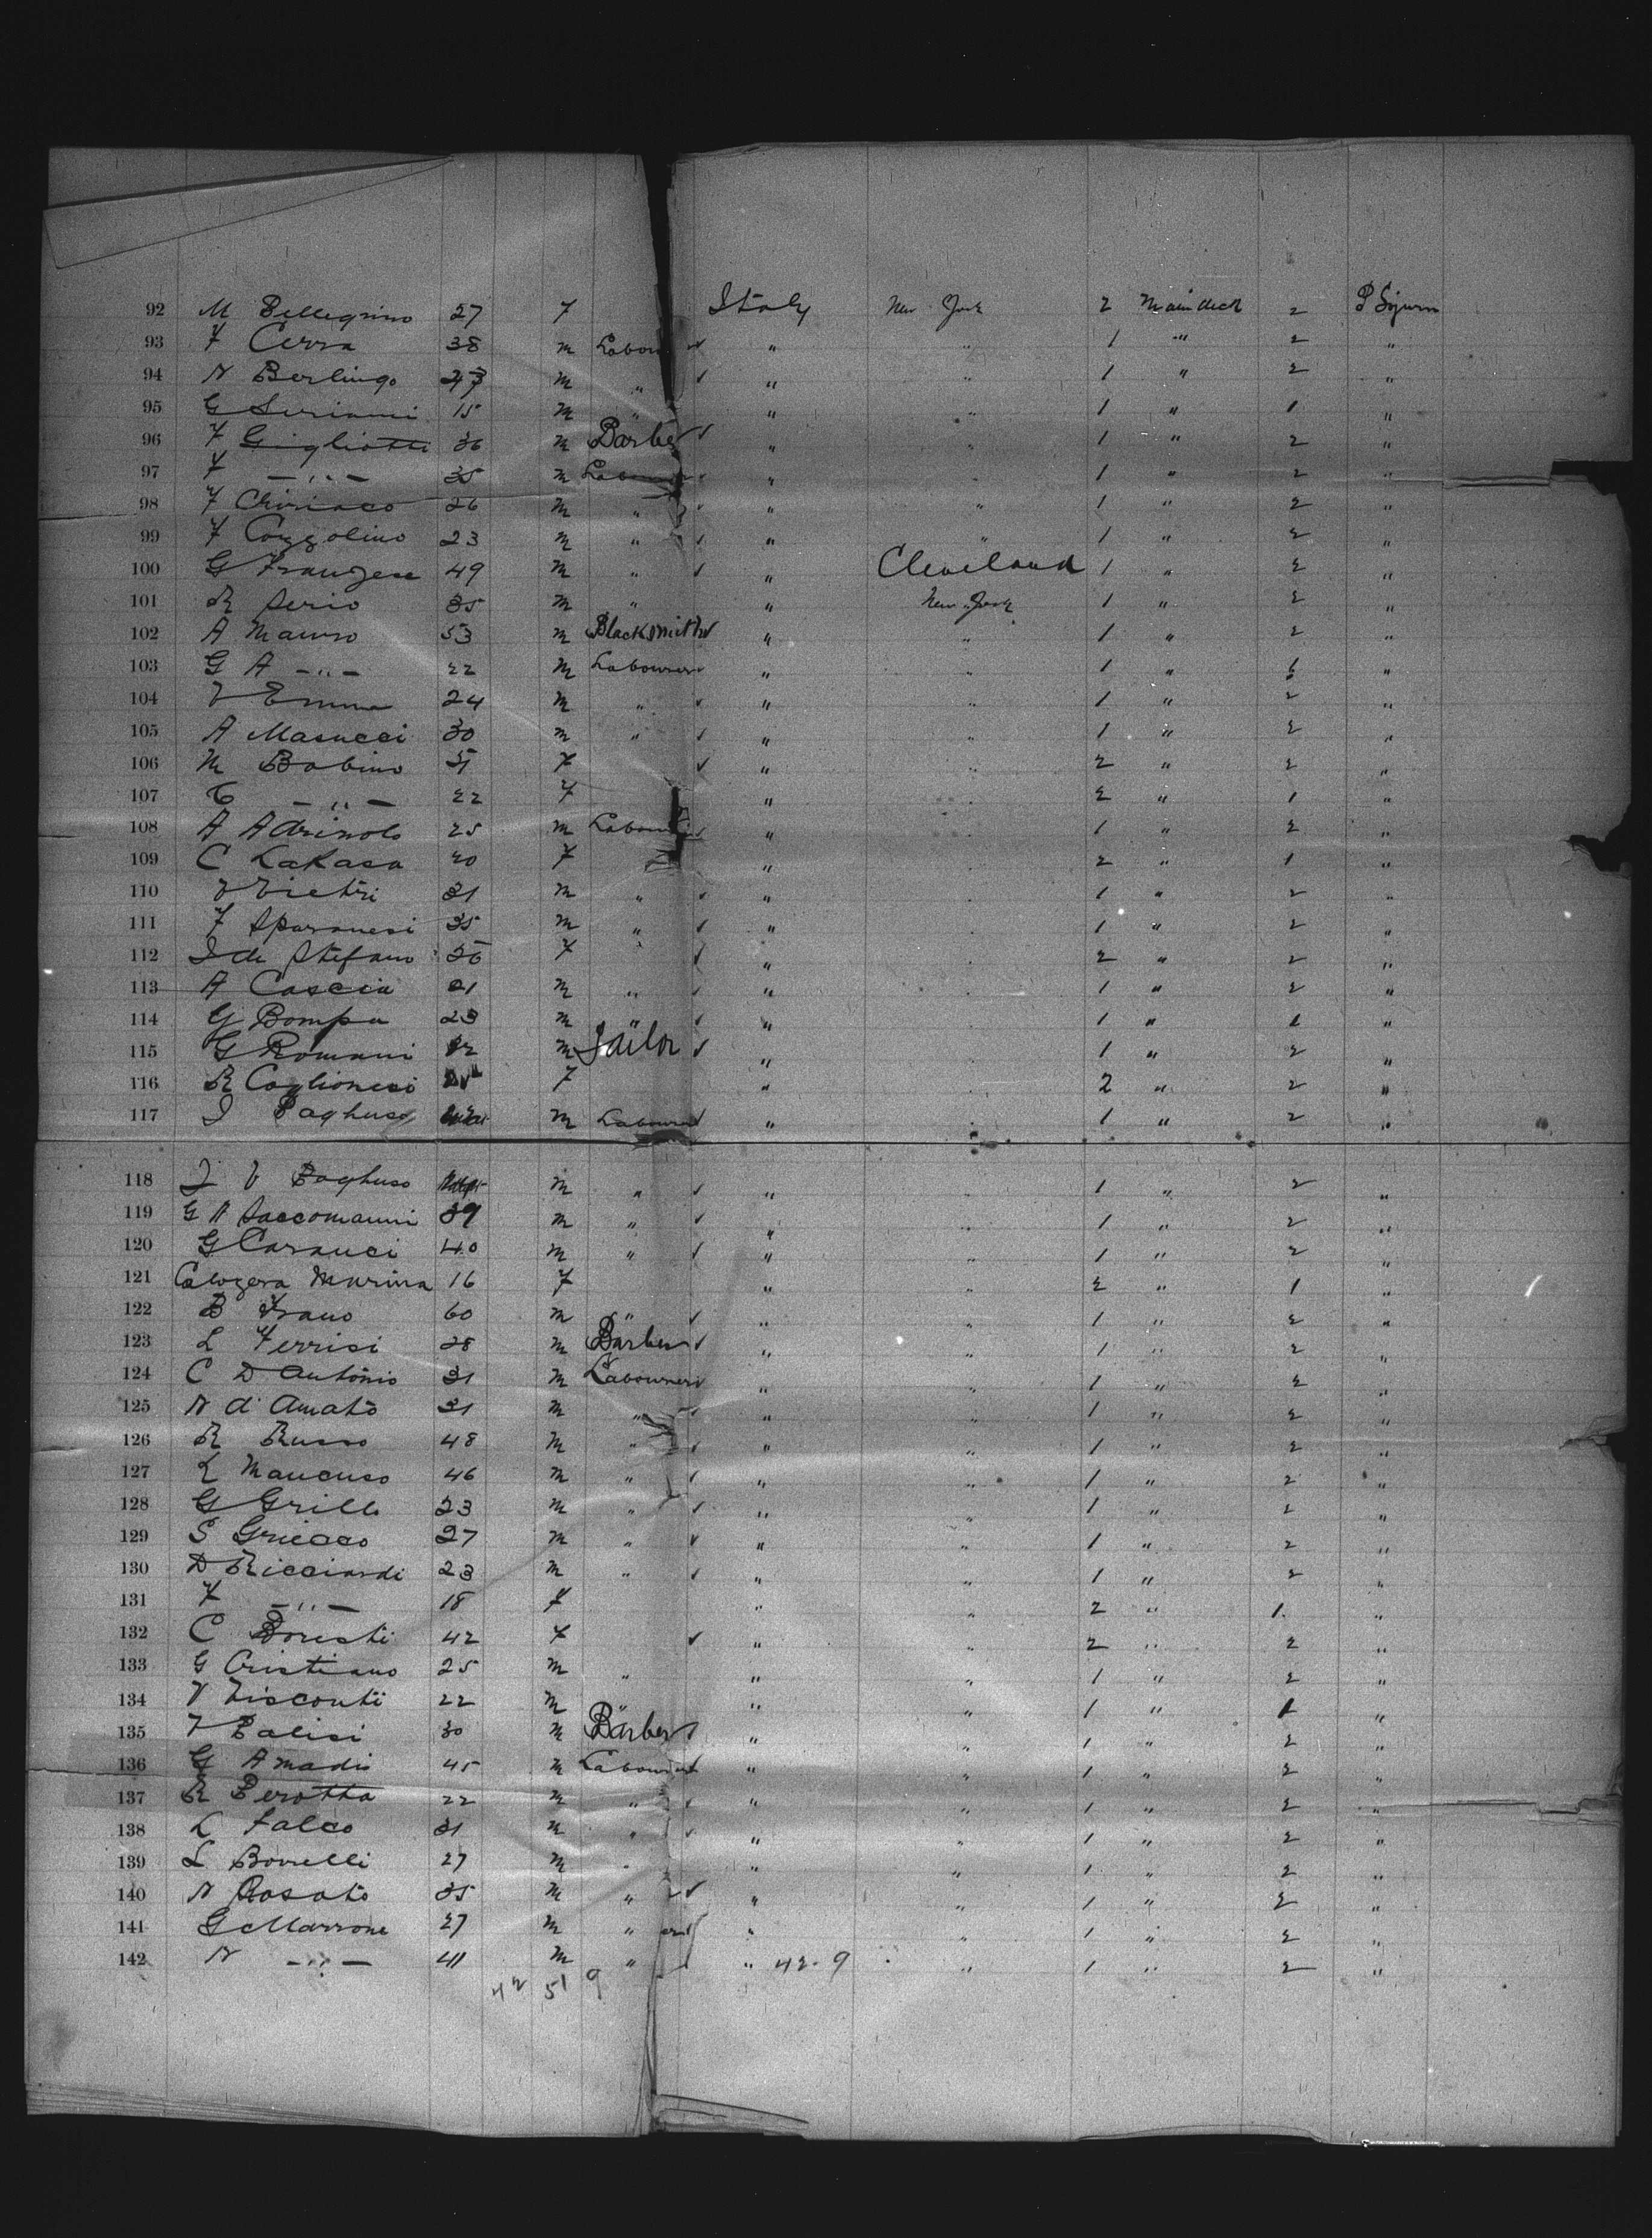 92 M Pellegrino 27 F Italy New York 2 Maindeck 2 P Sojurn
93 F Cerra 38 m Labour ✓ " " 1 " 2 "
94 N Berlingo m " ✓ " " 1 " 2 "
95 G Seriami 15 m " " " 1 " 1 "
96 F Gigliotti 36 m Barber ✓ " " 1 " 2 "
97 F — " — 35 m Labourer ✓ " " 1 " 2 "
98 F Chiriaco 26 m " ✓ " " 1 " 2 "
99 F Cozzolino 23 m " ✓ " " 1 " 2 "
100 G Franzese 49 m " ✓ " Cleveland 1 " 2 "
101 R Serio 35 m " " New York 1 " 2 "
102 A Mauro 53 m Blacksmith ✓ " " 1 " 2 "
103 G A — " — 22 m Labourer ✓ " " 1 " "
104 V Emma 24 m " ✓ " " 1 " 2 "
105 A Masucci 30 m " ✓ " " 1 " 2 "
106 M Bobino F ✓ " " 2 " 2 "
107 C — " — 22 F " " 2 " 1 "
108 A Adrinolo 25 m Labourer ✓ " " 1 " 2 "
109 C LaRasa 20 F " " 2 " 1 "
110 V Vietri 31 m " ✓ " " 1 " 2 "
111 F Sparanesi 35 m " ✓ " " 1 " 2 "
112 I de Stefano F " ✓ " " 2 " 2 "
113 A Cascia 21 m " ✓ " " 1 " 2 "
114 G Bompa 23 m " ✓ " " 1 " 1 "
115 G Romani m Tailor ✓ " " 1 " 2 "
116 R Coglionesi F " 2 " 2 "
117 I Paghuso m Labourer ✓ " " 1 " 2 "
118 I V Paghuso m " ✓ " " 1 " 2 "
119 G A Saccomanni 39 m " ✓ " " 1 " 2 "
120 G Carauci 40 m " ✓ " " 1 " 2 "
121 Calogera Marina 16 F " " 2 " 1 "
122 B Frano 60 m " ✓ " " 1 " 2 "
123 L Ferrisi 28 m Barber ✓ " " 1 " 2 "
124 C D Antonio 31 m Labourer ✓ " " 1 " 2 "
125 N d' Amato 31 m " ✓ " " 1 " 2 "
126 R Russo 48 m " ✓ " " 1 " 2 "
127 L Mancuso 46 m " ✓ " " 1 " 2 "
128 G Grillo 23 m " ✓ " " 1 " 2 "
129 S Griecco 27 m " ✓ " " 1 " 2 "
130 D Ricciardi 23 m " ✓ " " 1 " 2 "
131 F — " — 18 F " " 2 " 1 "
132 C Doresti 42 F ✓ " " 2 " 2 "
133 G Cristiano 25 m " " " 1 " 2 "
134 V Visconti 22 m " " " 1 " 1 "
135 V Palisi 30 m Barber ✓ " " 1 " 2 "
136 G Amadio 45 m Labourer ✓ " " 1 " 2 "
137 R Perotta 22 m " ✓ " " 1 " 2 "
138 L Falco 31 m " ✓ " " 1 " 2 "
139 L Borrelli 27 m " " " 1 " 2 "
140 N Rosato 35 m " ✓ " " 1 " 2 "
141 G Marrone 27 m " ✓ " " 1 " 2 "
142 N — " — 41 m " " 42.9 " 1 " 2 "
42 51 9